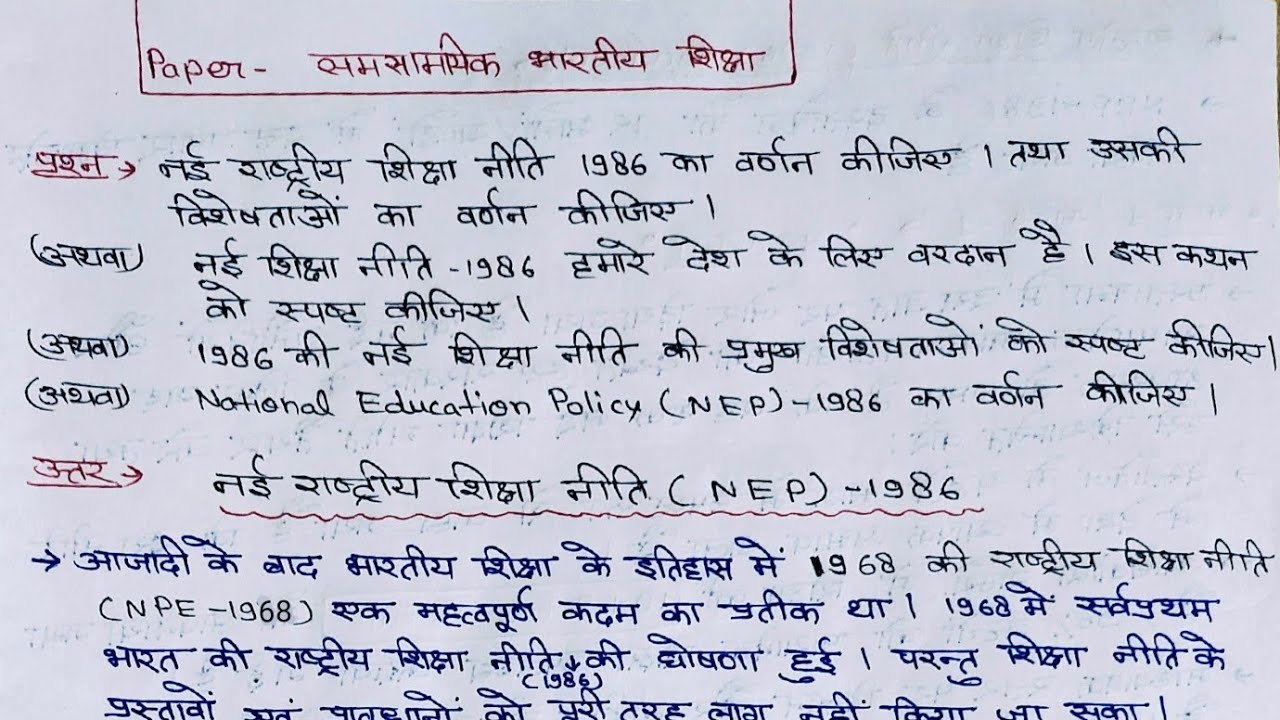 Paper- समसामयिक भारतीय शिक्षा
प्रश्न → नई राष्ट्रीय शिक्षा नीति 1986 का वर्णन कीजिए । तथा उसकी
विशेषताओं का वर्णन कीजिए ।
(अथवा) नई शिक्षा नीति -1986 हमारे देश के लिए वरदान है । इस कथन
को स्पष्ट कीजिए ।
(अथवा) 1986 की नई शिक्षा नीति की प्रमुख विशेषताओं को स्पष्ट कीजिए।
(अथवा) National Education Policy (NEP)-1986 का वर्णन कीजिए ।
उत्तर → नई राष्ट्रीय शिक्षा नीति (NEP) -1986
→ आजादी के बाद भारतीय शिक्षा के इतिहास में 1968 की राष्ट्रीय शिक्षा नीति
(NPE -1968) एक महत्वपूर्ण कदम का प्रतीक था । 1968 में सर्वप्रथम
भारत की राष्ट्रीय शिक्षा नीति की घोषणा हुई । परन्तु शिक्षा नीति के
(1986)
प्रस्तावों एवं प्रावधानों को पूरी तरह लागू नहीं किया जा सका ।